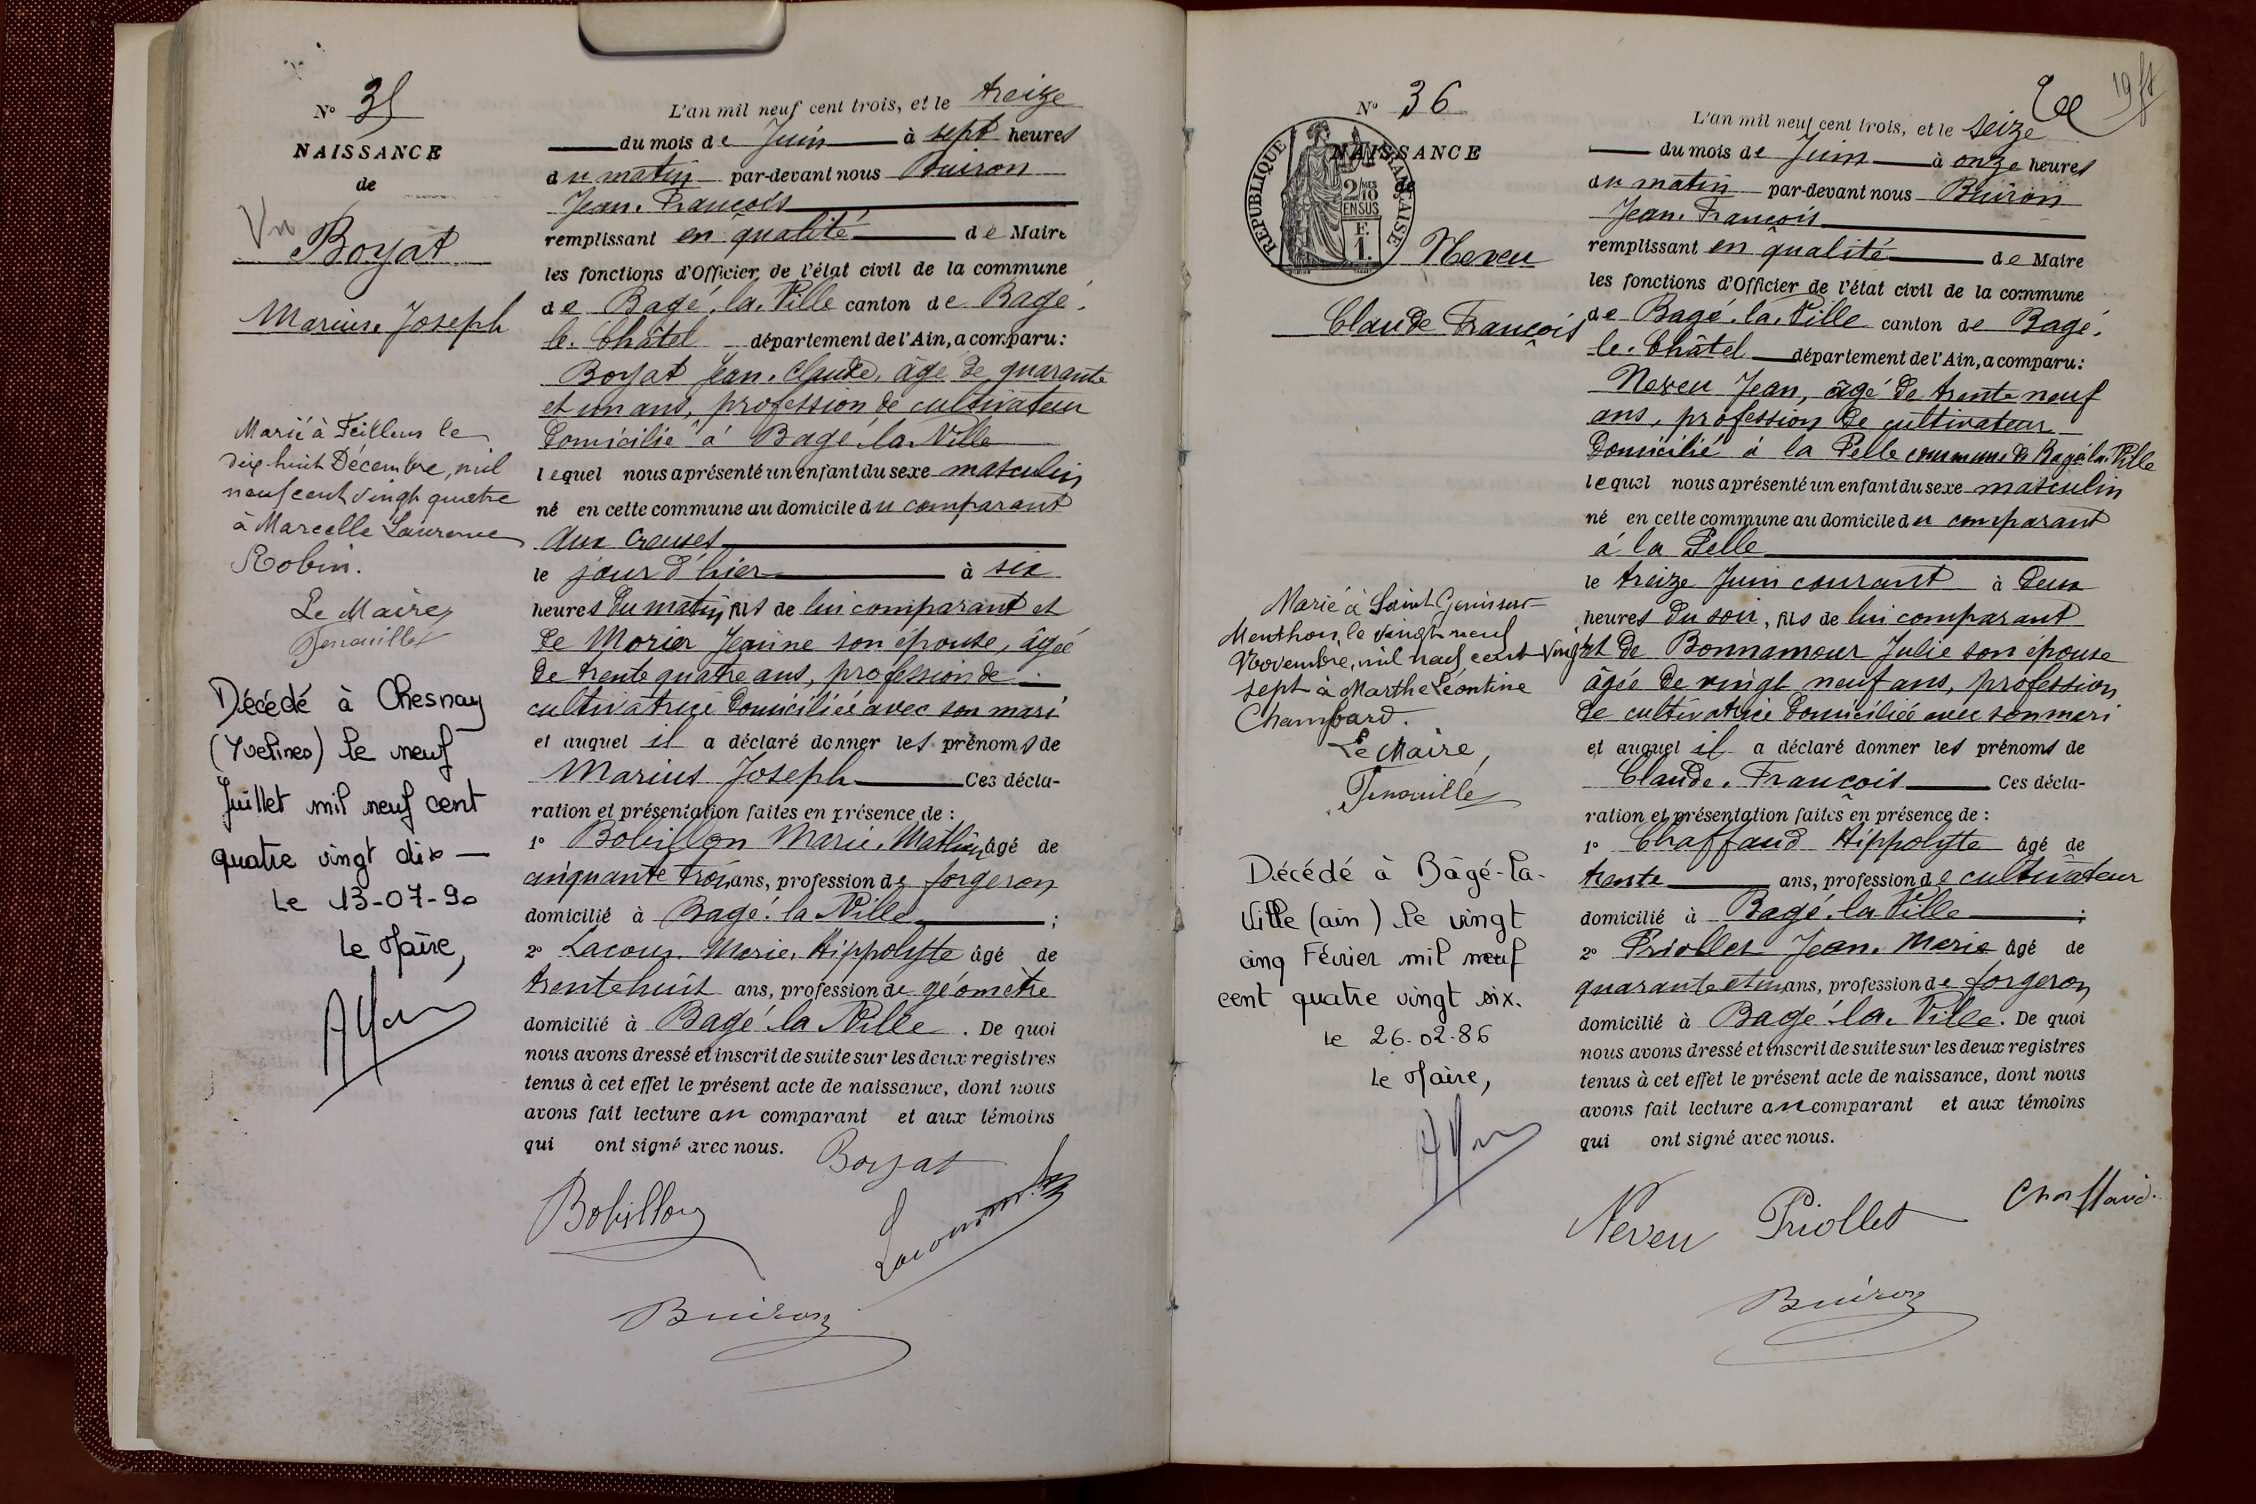 N° 35
NAISSANCE
de
Vu
Boyat
Marius. Joseph
Marié à Feillens le
dix-huit Décembre, mil
neuf cent vingt quatre
à Marcelle Laurence
Robin.
Le Maire,
Décédé à Chesnay
(Yvelines) le neuf
Juillet mil neuf cent
quatre vingt dix —
Le 13-07-90
Le Maire,
L'an mil neuf cent trois, et le treize
du mois de Juin à sept heures
du matin par-devant nous Buiron
Jean. François
remplissant en qualité de Maire
les fonctions d'Officier de l'état civil de la commune
de Bagé. la. Ville canton de Bagé.
le. Châtel département de l'Ain, a comparu:
Boyat Jean. Claude, âgé de quarante
et un ans, profession de cultivateur
domicilié à Bagé. la. Ville
lequel nous a présenté un enfant du sexe masculin
né en cette commune au domicile du comparant
aux Creuses
le jour d'hier à six
heures du matin, fils de lui comparant et
de Morier Jeanne son épouse, âgée
de trente quatre ans, profession de
cultivatrice domiciliée avec son mari
et auquel il a déclaré donner les prénoms de
Marius Joseph Ces décla-
ration et présentation faites en présence de :
1° Bobillon Marie. Mathieu âgé de
cinquante trois ans, profession de forgeron
domicilié à Bagé. la Ville ;
2° Lacour. Marie. Hippolyte âgé de
trente huit ans, profession de géomètre
domicilié à Bagé. la Ville. De quoi
nous avons dressé et inscrit de suite sur les deux registres
tenus à cet effet le présent acte de naissance, dont nous
avons fait lecture au comparant et aux témoins
qui ont signé avec nous.
Boyat
Bobillon
Buiron
N° 36
NAISSANCE
de
RÉPUBLIQUE FRANÇAISE
2/10
EN SUS
F.
1.
Neveu
Claude François
Marié à Saint Genis sur
Menthon, le vingt neuf
Novembre, mil neuf cent vingt
sept à Marthe Léontine
Chambard.
Le Maire,
Décédé à Bâgé-la-
Ville (ain) le vingt
cinq Février mil neuf
cent quatre vingt six.
Le 26-02-86
Le Maire,
L'an mil neuf cent trois, et le seize
du mois de Juin à onze heures
du matin par-devant nous Buiron
Jean. François
remplissant en qualité de Maire
les fonctions d'Officier de l'état civil de la commune
de Bagé. la. Ville canton de Bagé.
le. Châtel département de l'Ain, a comparu:
Neveu Jean, âgé de trente neuf
ans, profession de cultivateur
domicilié à la Pelle commune de Bagé. la. Ville
lequel nous a présenté un enfant du sexe masculin
né en cette commune au domicile du comparant
à la Pelle
le treize Juin courant à deux
heures du soir, fils de lui comparant
et de Bonnamour Julie son épouse
âgée de vingt neuf ans, profession
de cultivatrice domiciliée avec son mari
et auquel il a déclaré donner les prénoms de
Claude. François Ces décla-
ration et présentation faites en présence de :
1° Chaffaud Hippolyte âgé de
trente ans, profession de cultivateur
domicilié à Bagé. la Ville ;
2° Priollet Jean. Marie âgé de
quarante et un ans, profession de forgeron
domicilié à Bagé. la. Ville. De quoi
nous avons dressé et inscrit de suite sur les deux registres
tenus à cet effet le présent acte de naissance, dont nous
avons fait lecture au comparant et aux témoins
qui ont signé avec nous.
Neveu Priollet Chaffaud
Buiron